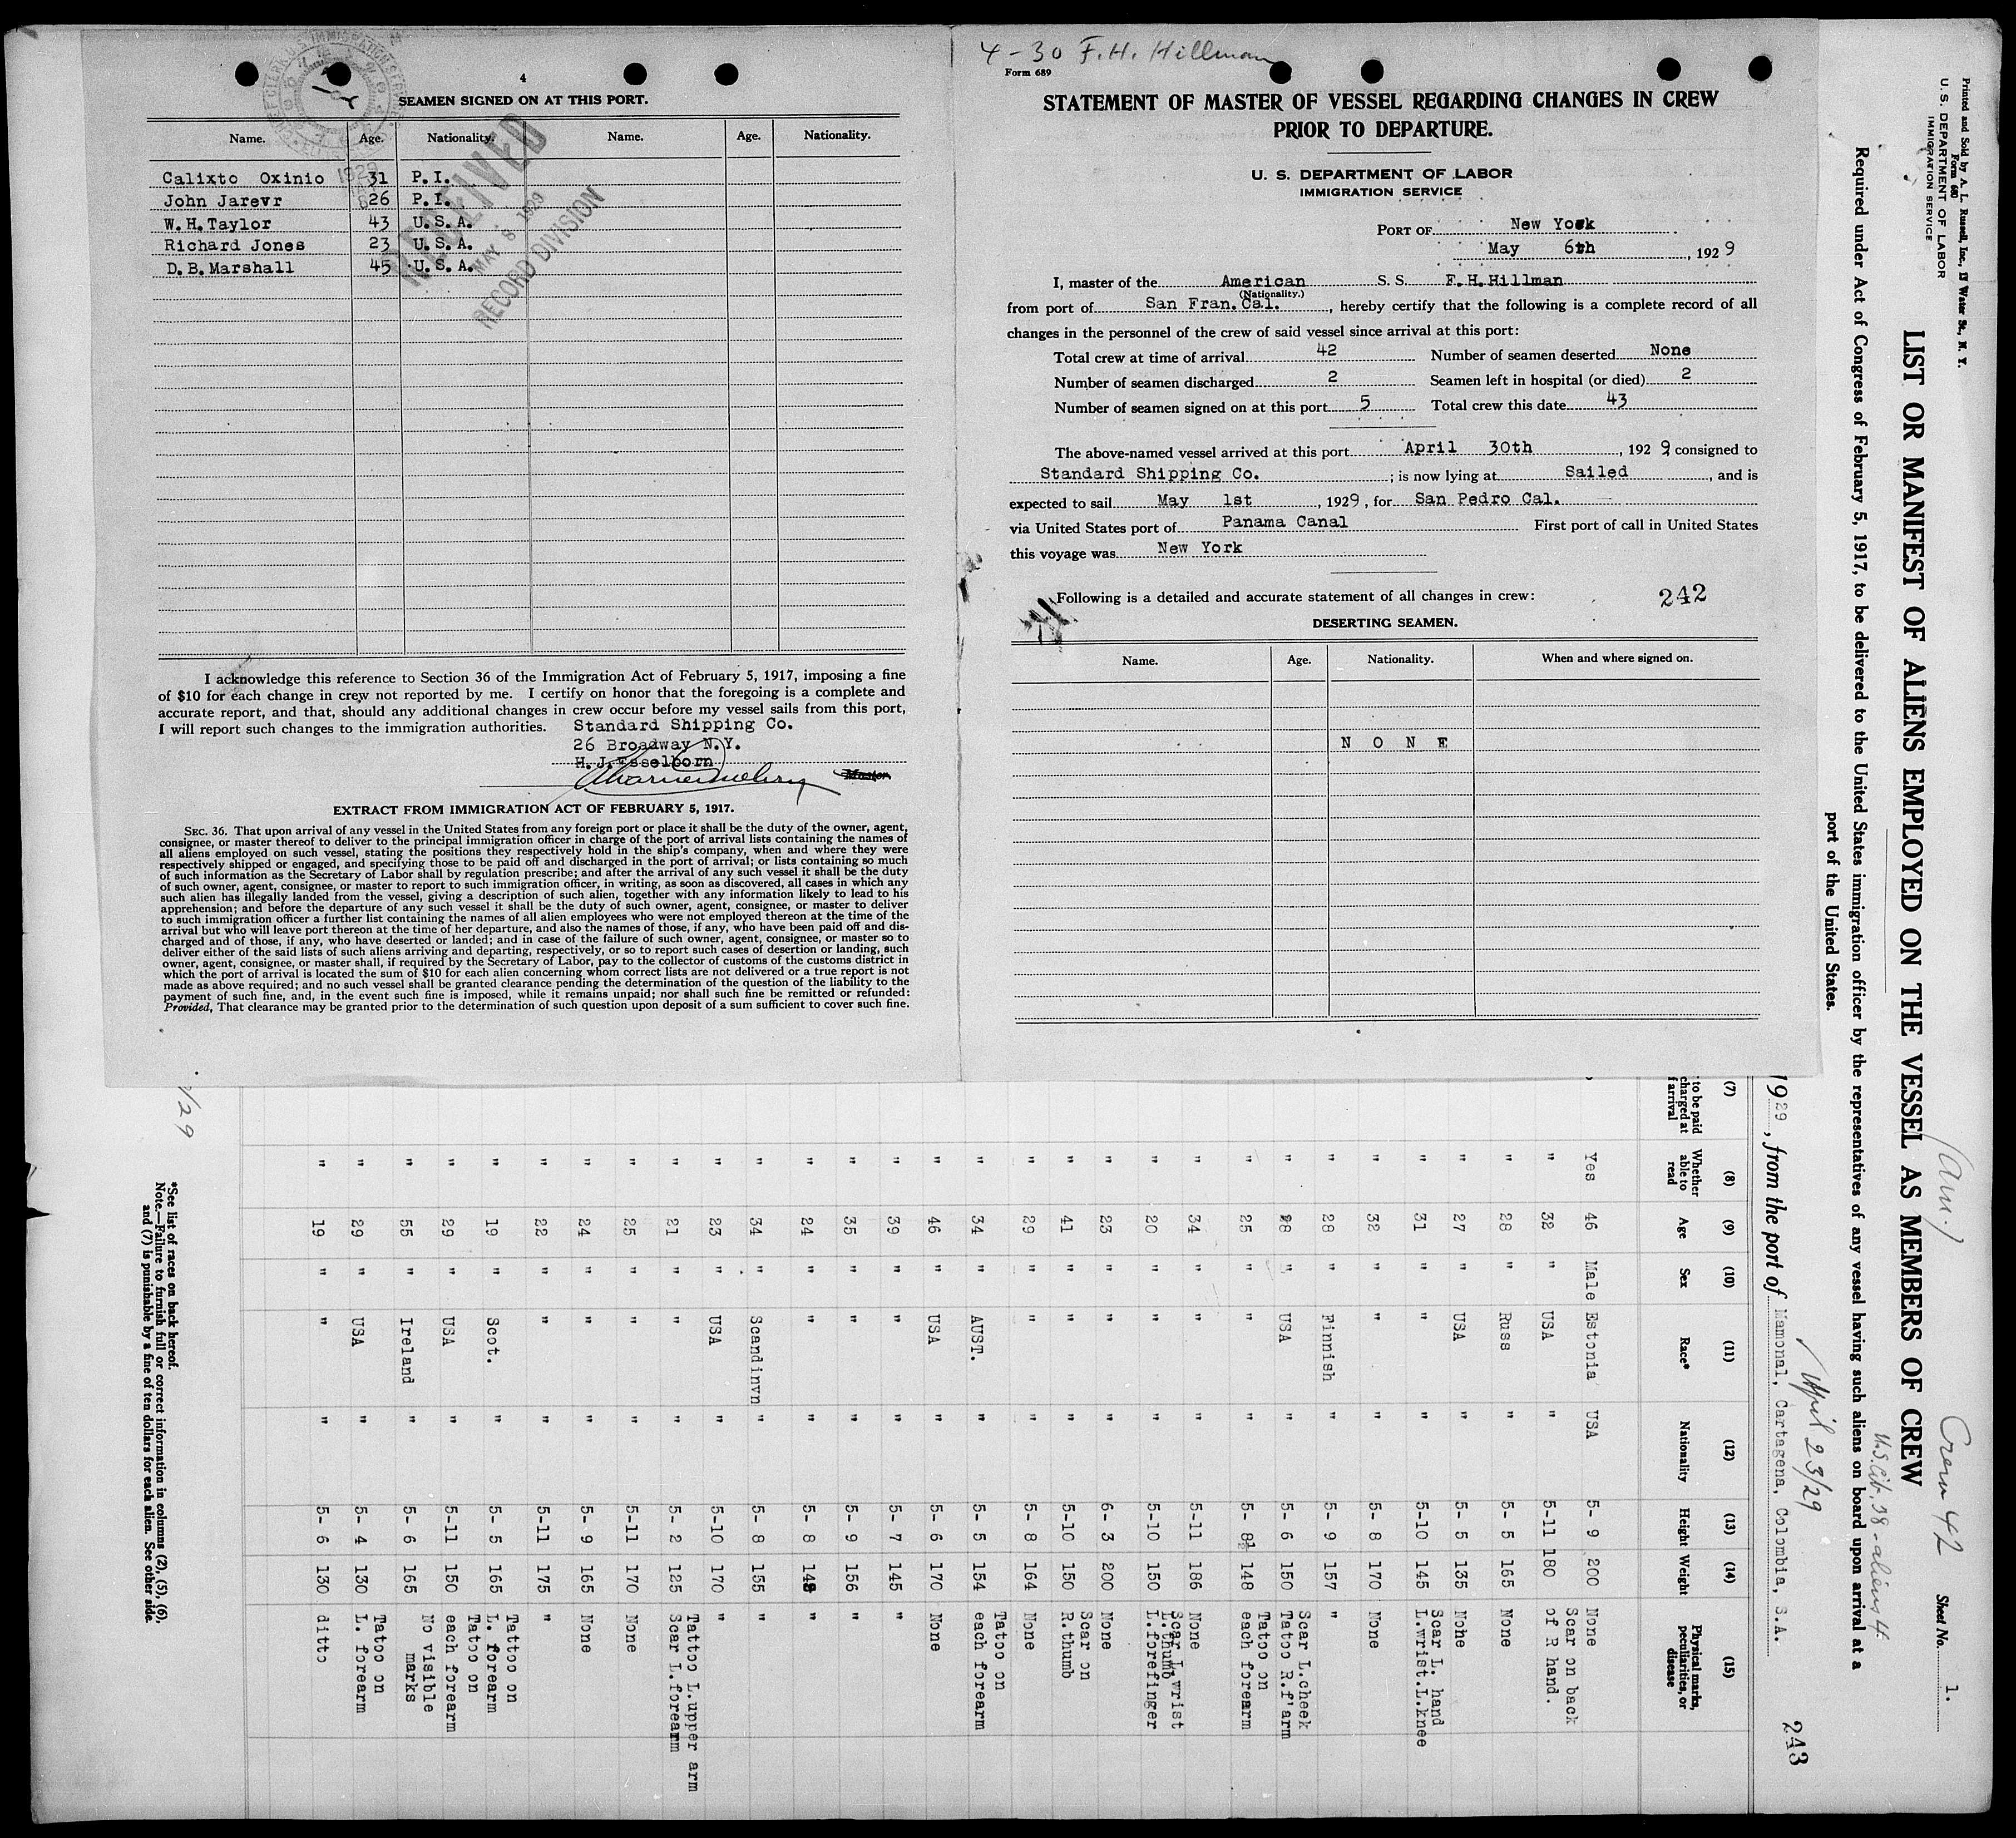 4
SEAMEN SIGNED ON AT THIS PORT.
Name. Age. Nationality. Name. Age. Nationality.
Calixto Oxinio 31 P.I.
John Jarevr 26 P.I.
W.H.Taylor 43 U.S.A.
Richard Jones 23 U.S.A.
D.B.Marshall 45 U.S.A.
RECEIVED
MAY 8 1929
RECORD DIVISION
I acknowledge this reference to Section 36 of the Immigration Act of February 5, 1917, imposing a fine
of $10 for each change in crew not reported by me. I certify on honor that the foregoing is a complete and
accurate report, and that, should any additional changes in crew occur before my vessel sails from this port,
I will report such changes to the immigration authorities. Standard Shipping Co.
26 Broadway N.Y.
H.J.Esselborn
Master.
EXTRACT FROM IMMIGRATION ACT OF FEBRUARY 5, 1917.
SEC. 36. That upon arrival of any vessel in the United States from any foreign port or place it shall be the duty of the owner, agent,
consignee, or master thereof to deliver to the principal immigration officer in charge of the port of arrival lists containing the names of
all aliens employed on such vessel, stating the positions they respectively hold in the ship's company, when and where they were
respectively shipped or engaged, and specifying those to be paid off and discharged in the port of arrival; or lists containing so much
of such information as the Secretary of Labor shall by regulation prescribe; and after the arrival of any such vessel it shall be the duty
of such owner, agent, consignee, or master to report to such immigration officer, in writing, as soon as discovered, all cases in which any
such alien has illegally landed from the vessel, giving a description of such alien, together with any information likely to lead to his
apprehension; and before the departure of any such vessel it shall be the duty of such owner, agent, consignee, or master to deliver
to such immigration officer a further list containing the names of all alien employees who were not employed thereon at the time of the
arrival but who will leave port thereon at the time of her departure, and also the names of those, if any, who have been paid off and dis-
charged and of those, if any, who have deserted or landed; and in case of the failure of such owner, agent, consignee, or master so to
deliver either of the said lists of such aliens arriving and departing, respectively, or so to report such cases of desertion or landing, such
owner, agent, consignee, or master shall, if required by the Secretary of Labor, pay to the collector of customs of the customs district in
which the port of arrival is located the sum of $10 for each alien concerning whom correct lists are not delivered or a true report is not
made as above required; and no such vessel shall be granted clearance pending the determination of the question of the liability to the
payment of such fine, and, in the event such fine is imposed, while it remains unpaid; nor shall such fine be remitted or refunded:
Provided, That clearance may be granted prior to the determination of such question upon deposit of a sum sufficient to cover such fine.
4-30 F.H. Hillman
Form 689
STATEMENT OF MASTER OF VESSEL REGARDING CHANGES IN CREW
PRIOR TO DEPARTURE.
U. S. DEPARTMENT OF LABOR
IMMIGRATION SERVICE
PORT OF New York
May 6th, 1929
I, master of the American S. S. F.H.Hillman
(Nationality.)
from port of San Fran.Cal., hereby certify that the following is a complete record of all
changes in the personnel of the crew of said vessel since arrival at this port:
Total crew at time of arrival 42 Number of seamen deserted None
Number of seamen discharged 2 Seamen left in hospital (or died) 2
Number of seamen signed on at this port 5 Total crew this date 43
The above-named vessel arrived at this port April 30th, 1929, consigned to
Standard Shipping Co.; is now lying at Sailed, and is
expected to sail May 1st, 1929, for San Pedro Cal.
via United States port of Panama Canal First port of call in United States
this voyage was New York
Following is a detailed and accurate statement of all changes in crew: 242
DESERTING SEAMEN.
Name. Age. Nationality. When and where signed on.
N O N E
Printed and Sold by A. L. Russell, Inc., 17 Water St., N. Y.
Form 680
U. S. DEPARTMENT OF LABOR
IMMIGRATION SERVICE
(Am.) Crew 42 Sheet No. 1.
LIST OR MANIFEST OF ALIENS EMPLOYED ON THE VESSEL AS MEMBERS OF CREW
U.S. Cit. 38 - aliens 4
Required under Act of Congress of February 5, 1917, to be delivered to the United States immigration officer by the representatives of any vessel having such aliens on board upon arrival at a
port of the United States.
April 23/29
1929, from the port of Mamonal, Cartagena, Colombia, S.A. 243
(7) (8) (9) (10) (11) (12) (13) (14) (15)
to be paid charged at arrival Whether able to read Age Sex Race* Nationality Height Weight Physical marks, peculiarities, or disease
Yes 46 Male Estonia USA 5- 9 200 None
" 32 " USA " 5-11 180 Scar on back of R hand.
" 28 " Russ " 5- 5 165 None
" 27 " USA " 5- 5 135 None
" 31 " " " 5-10 145 Scar L. hand L.wrist.L.knee
" 32 " " " 5- 8 170 None
" 28 " Finnish " 5- 9 157 "
" 28 " USA " 5- 6 150 Scar L.cheek Tatoo R.f'arm
" 25 " " " 5- 8½ 148 Tatoo on each forearm
" 34 " " " 5-11 186 None
" 20 " " " 5-10 150 Scar L.wrist L.thumb L.forefinger
" 23 " " " 6- 3 200 None
" 41 " " " 5-10 150 Scar on R.thumb
" 29 " " " 5- 8 164 None
" 34 " AUST. " 5- 5 154 Tatoo on each forearm
" 46 " USA " 5- 6 170 None
" 39 " " " 5- 7 145 "
" 35 " " " 5- 9 156 "
" 24 " " " 5- 8 148 "
" 34 " Scandinvn " 5- 8 155 "
" 23 " USA " 5-10 170 "
" 21 " " " 5- 2 125 Tattoo L.upper arm Scar L.forearm
" 25 " " " 5-11 170 None
" 24 " " " 5- 9 165 None
" 22 " " " 5-11 175 "
" 19 " Scot. " 5- 5 165 Tattoo on L. forearm
" 29 " USA " 5-11 150 Tatoo on each forearm
" 55 " Ireland " 5- 6 165 No visible marks
" 29 " USA " 5- 4 130 Tatoo on L. forearm
" 19 " " " 5- 6 130 ditto
/29
*See list of races on back hereof.
Note.—Failure to furnish full or correct information in columns (2), (5), (6),
and (7) is punishable by a fine of ten dollars for each alien. See other side.